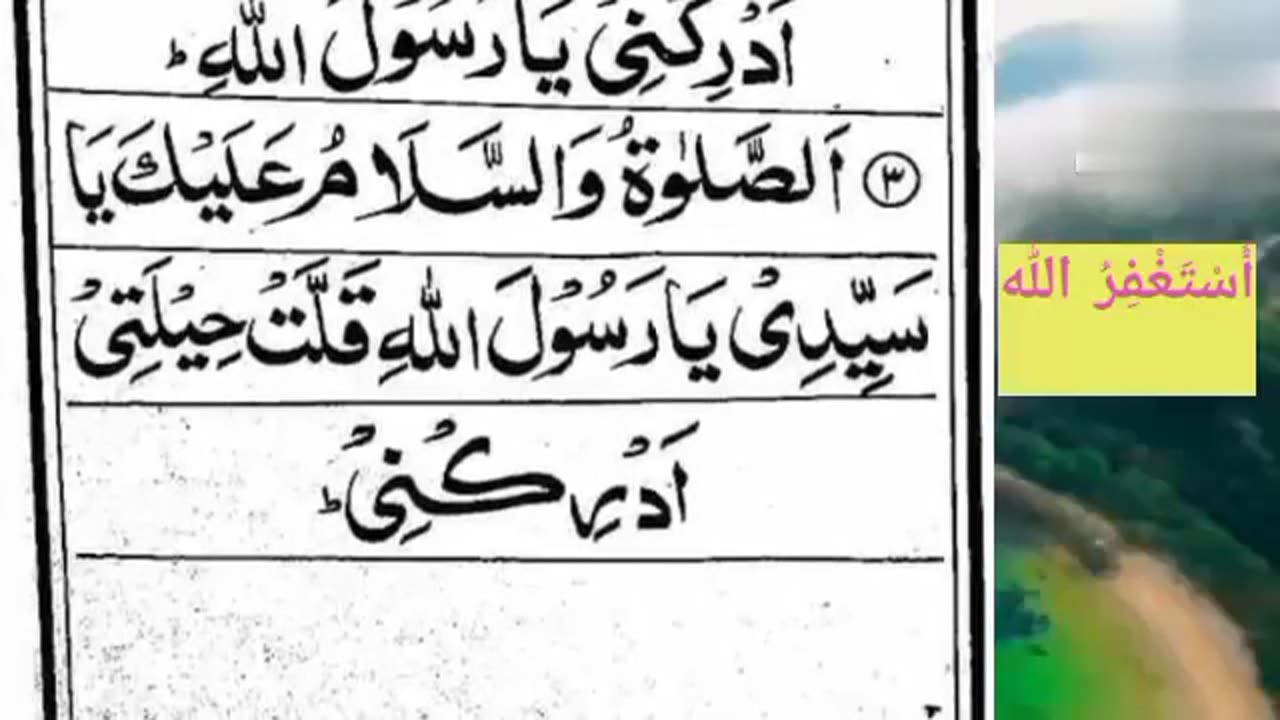 اَدْرِكْنِىْ يَا رَسُوْلَ اللّٰهِ ؕ
۳ اَلصَّلٰوةُ وَالسَّلَامُ عَلَيْكَ يَا
سَيِّدِىْ يَا رَسُوْلَ اللّٰهِ قَلَّتْ حِيْلَتِىْ
اَدْرِكْنِىْ ؕ
أَسْتَغْفِرُ اللّٰه